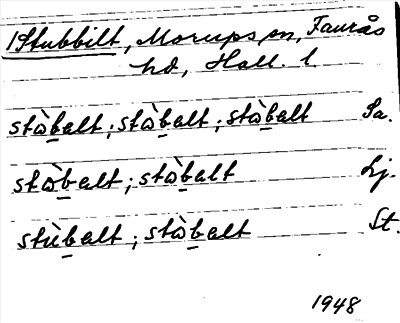 1 Stubbilt, Morups sn, Faurås
hd, Hall. l.
stòbalt; stòbalt; stòbalt Sa.
stòbalt; stòbalt Lj.
stùbalt; stòbalt St.
1948